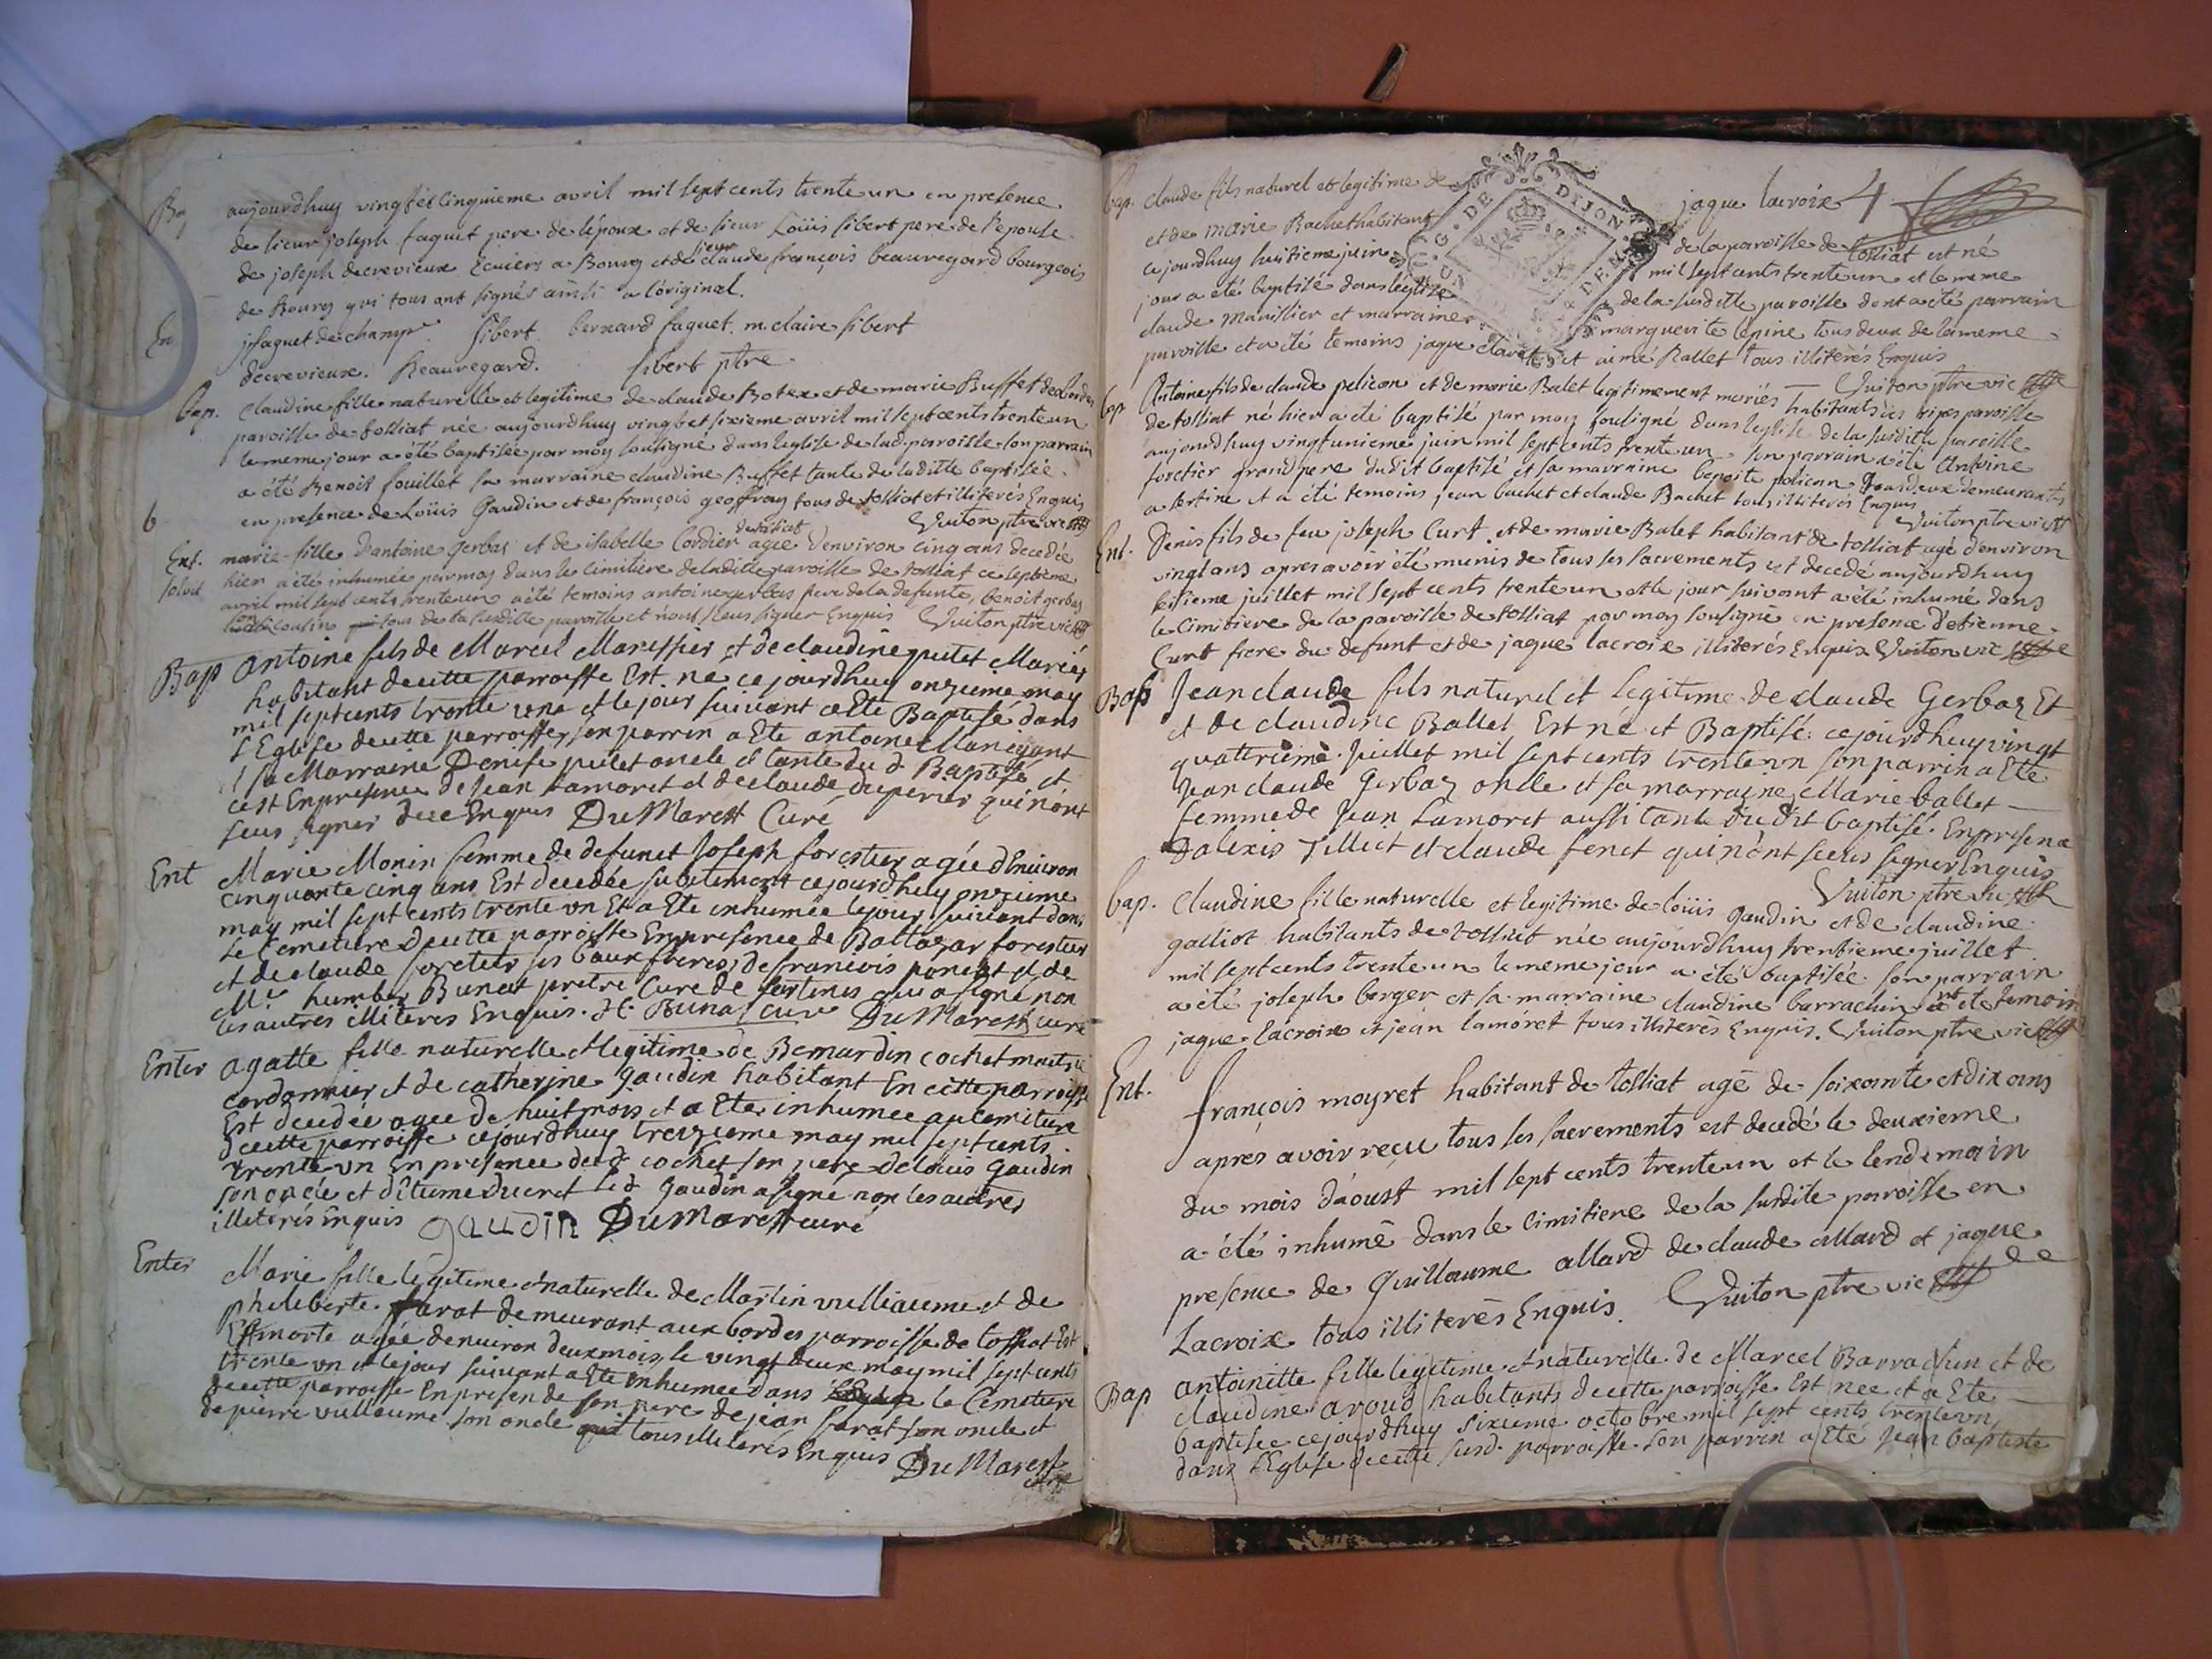 aujourdhuy vingt et cinquieme avril mil sept cents trente un en presence
de sieur joseph faguet pere de lépoux et de sieur Loüis sibert pere de l'epouse
de joseph decrevieux Ecuiers a Bourg et de sieur claude françois beauregard bourgeois
de Bourg qui tous ont signés ainsi a l'original.
jfaguet de champ sibert bernard faguet m. claire sibert
decrevieux. Beauregard. sibert ptre
Bap. Claudine fille naturelle et legitime de claude Botex et de marie Buffet de
paroisse de tossiat née aujourdhuy vingt et sixieme avril mil sept cents trente un
le meme jour a été baptisée par moy soussigné dans leglise de lad. paroisse son parrain
a été Benoit fouillet sa marraine claudine Buffet tante de laditte baptisée
en presence de Loüis Gaudin et de françois geoffray tous de tossiat et illiterés Enquis
6 Vuiton ptre vic
Ent. marie fille d'antoine gerbas et de isabelle Cordier de tossiat agée d'environ cinq ans decedée
solvit hier a été inhumée par moy dans le cimitiere de laditte paroisse de tossiat ce septieme
avril mil sept cents trente un a été temoins antoine gerbas pere de la defunte, benoit gerbas
son cousin tous de la susditte paroisse et n'ont sceus signer Enquis Vuiton ptre vic
Bap Antoine fils de Marcel Marissier et de claudine putet Mariés
habitant decette parroisse Est né ce jourdhuy onzieme may
mil septcents trente une et le jour suivant a Ete Baptisé dans
L'Eglise decette parroisse, son parrin a Ete antoine
et sa Marraine Denise putet oncle et tante du d. Baptisé et
cest En presence de Jean Lamoret et de claude duperier qui n'ont
sceus signer de ce Enquis DuMarest Curé
Ent Marie Monin femme de defunct Joseph forestier agée d'Environ
cinquante cinq ans Est decedée subitement cejourdhuy onzieme
may mil sept cents trente un Et a Ete inhumée le jour suivant dans
le Cemetiere decette parroisse En presence de Baltazar forestier
et de claude foretier ses baux freres, de francois poncet et de
Mr humbert Bunat pretre Curé de sertines qui a signé non
les autres illiteres Enquis. H. Bunat curé DuMarest curé
Enter agatte fille naturelle et legitime de Bernardin cochet maitre
cordonnier et de catherine gaudin habitant En cette parroisse
Est decedée agee de huit mois et a Ete inhumee au cemitiere
decette parroisse cejourdhuy treizieme may mil sept cents
trente un En presence dud. cochet son pere de Louis Gaudin
son oncle et d'Etienne ducret Led. gaudin a signe non les autres
illiterés Enquis gaudin DuMarest curé
Enter Marie fille legitime et naturelle de Martin vulliaume et de
Philiberte farat demeurant aux bordes parroisse de tossiat Est
morte agée denviron deux mois, le vingt deux may mil sept cents
trente un et le jour suivant a Ete inhumee dans le Cemetiere
decette parroisse En presen de son pere de jean farat son oncle et
de pierre vulliaume son oncle tous illiterés Enquis DuMarest
curé
Bap. claude fils naturel et legitime de jaque lacroix 4
et de marie Bachet habitant de la paroisse de tossiat est né
cejourdhuy huitieme juin mil sept cents trente un et le meme
jour a été baptisé dans léglise de la susditte paroisse dont a été parrain
claude marissier et marraine marguerite lepine tous deux de la meme
paroisse et a été temoins jaque clavet et aimé Rallet tous illiterés Enquis
Vuiton ptre vic
G. DE DIJON
Bap Antoine fils de claude pelicon et de marie Balet legitimement mariés habitants des ripes paroisse
de tossiat né hier a été baptisé par moy soussigné dans leglise de la susditte paroisse
aujourdhuy vingt unieme juin mil sept cents trente un son parrain a été Antoine
foretier grand pere dudit baptisé et sa marraine benoite pelicon tous deux demeurants
a sertine et a été temoins jean bachet et claude Bachet tous illiterés Enquis Vuiton ptre vic
Ent. Denis fils de feu joseph Curt et de marie Balet habitant de tossiat agé d'environ
vingt ans apres avoir été munis de tous ses sacrements est decedé aujourdhuy
seisieme juillet mil sept cents trente un et le jour suivant a été inhumé dans
le Cimitiere de la paroisse de tossiat par moy soussigné en presence d'etienne
Curt frere du defunt et de jaque lacroix illiterés Enquis Vuiton vic
Bap Jean claude fils naturel et legitime de claude Gerbaz Et
et de claudine Ballet Est né et Baptisé cejourdhuy vingt
quattrieme Juillet mil sept cents trente un son parrin a Ete
Jean claude Gerbaz oncle et sa marraine Marie ballet
femme de Jean Lamoret aussi tante du dit baptisé. En presence
D'alexis Tillet et claude fenet qui n'ont sceus signer Enquis
Vuiton ptre vic
bap. Claudine fille naturelle et legitime de loüis gaudin et de claudine
galliot habitants de tossiat née aujourdhuy trentieme juillet
mil sept cents trente un le meme jour a été baptisée son parrain
a été joseph berger et sa marraine claudine barrachin ont été temoin
jaque lacroix et jean lamoret tous illiterés Enquis. Vuiton ptre vic
Ent. françois moyret habitant de tossiat agé de soixante et dix ans
apres avoir reçu tous les sacrements est decedé le deuxieme
du mois d'aoust mil sept cents trente un et le lendemain
a été inhumé dans le cimitiere de la susdite paroisse en
presence de Guillaume allard de claude allard et jaque de
Lacroix tous illiterés Enquis. Vuiton ptre vic
Bap antoinette fille legitime et naturelle de Marcel Barrachin et de
claudine aroud habitants decette parroisse Est nee et a Ete
baptisee cejourdhuy sixieme octobre mil sept cents trente un
dans l'Eglise decette susd. parroisse son parrin a Ete Jean baptiste